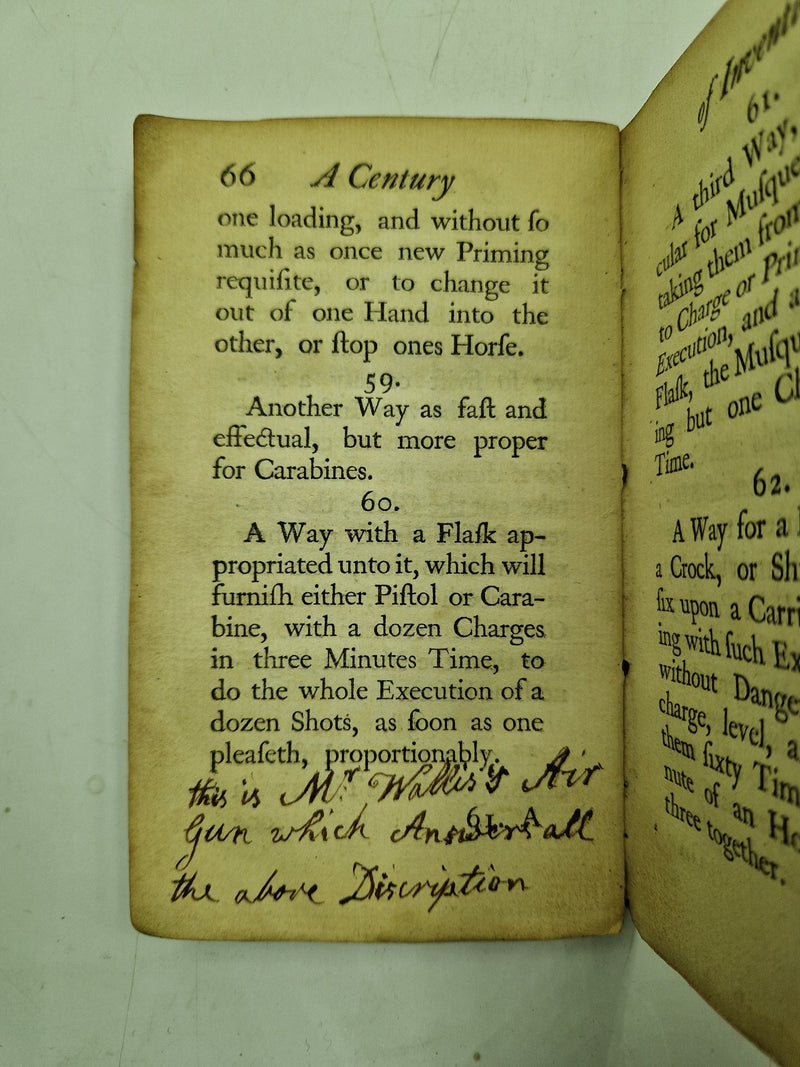 66 A Century
one loading, and without ſo
much as once new Priming
requiſite, or to change it
out of one Hand into the
other, or ſtop ones Horſe.
59.
Another Way as faſt and
effectual, but more proper
for Carabines.
60.
A Way with a Flaſk ap-
propriated unto it, which will
furniſh either Piſtol or Cara-
bine, with a dozen Charges
in three Minutes Time, to
do the whole Execution of a
dozen Shots, as ſoon as one
pleaſeth, proportionably.
this is Mr Wallis's Air
Gun which Answers all
the above Discription
of Inventi
61.
A third Way,
cular for Muſque
taking them from
to Charge or Prim
Execution, and a
Flaſk, the Muſqu
ing but one Cl
Time.
62.
A Way for a
a Crock, or Sh
fix upon a Carri
ing with ſuch Ex
without Dange
charge, level, a
them ſixty Tim
nute of an Ho
three together.